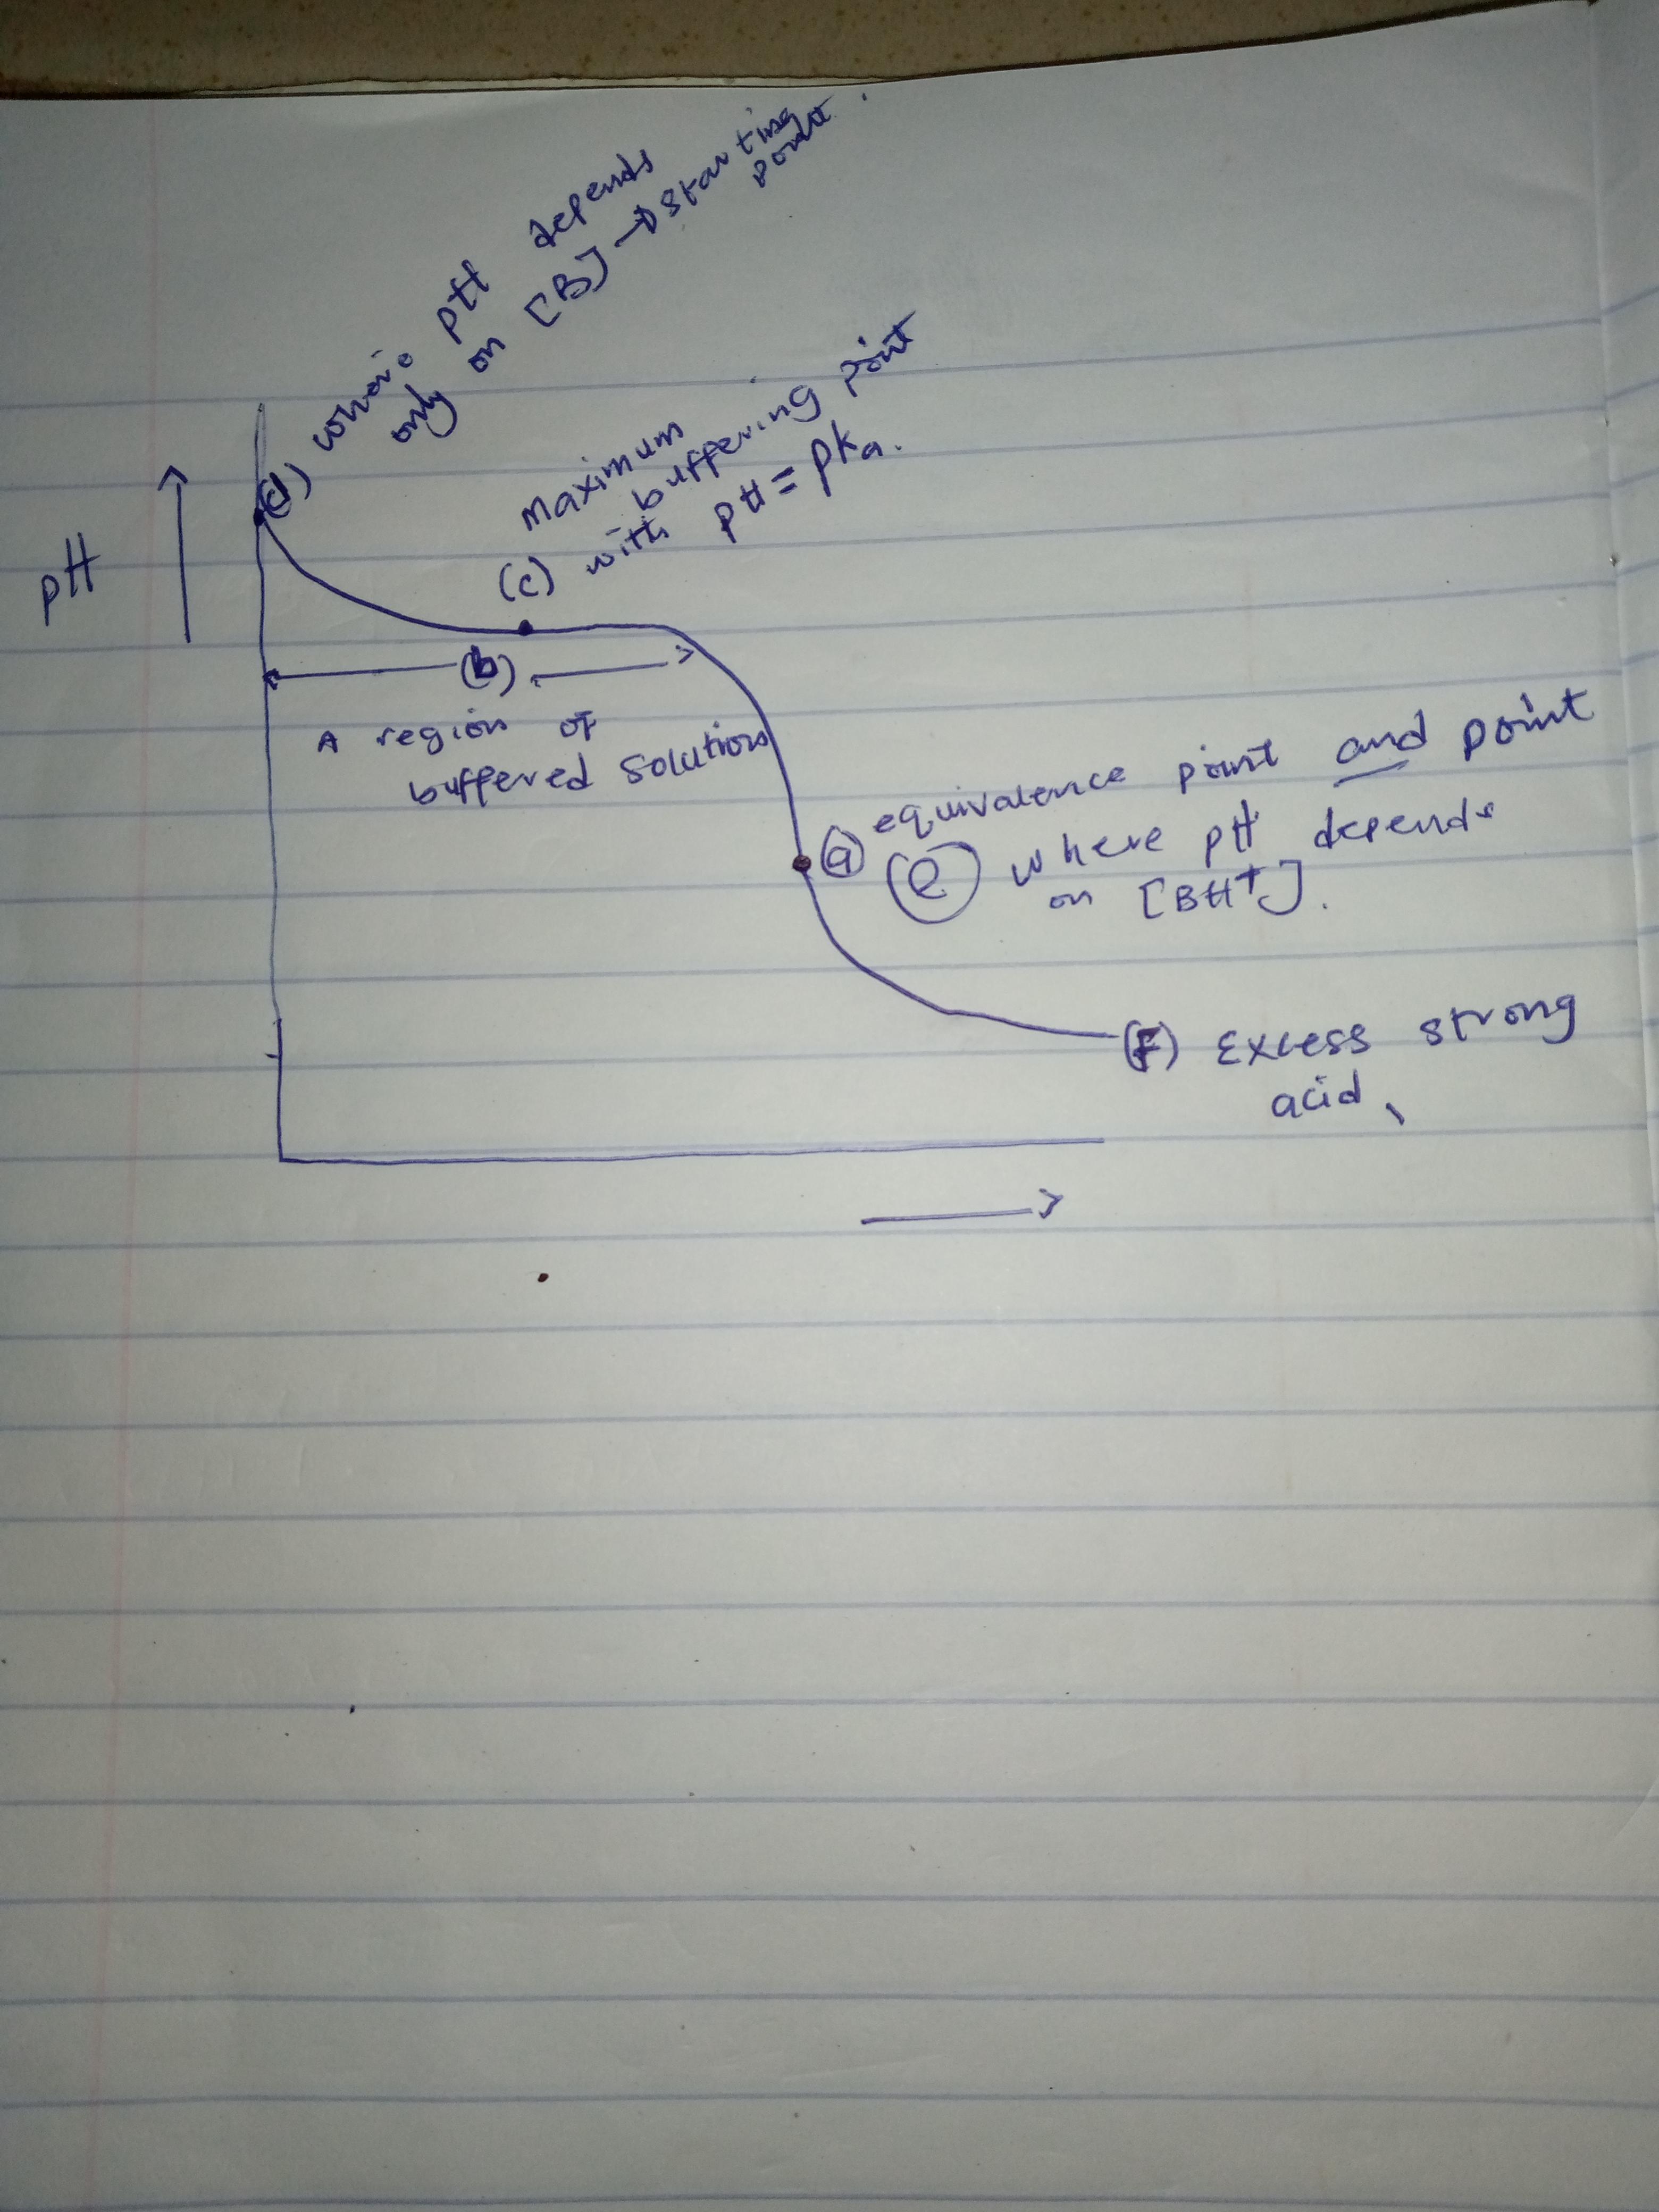 (d) where pH depends
only on [B] → starting
point.
maximum
buffering point
(c) with pH = pKa.
pH
(b)
A region of
buffered solution
(a) equivalence point and point
(e) where pH depends
on [BH+].
(F) Excess strong
acid